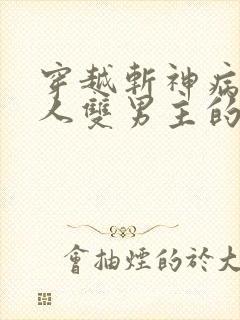 穿越斬神病
人雙男主的
會抽煙的於大